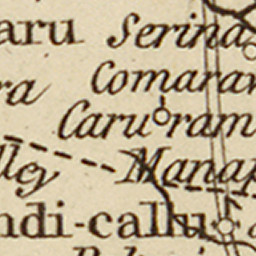 aru Serina
ra Comarav
Caru ram
lley Manap
ndi-callu